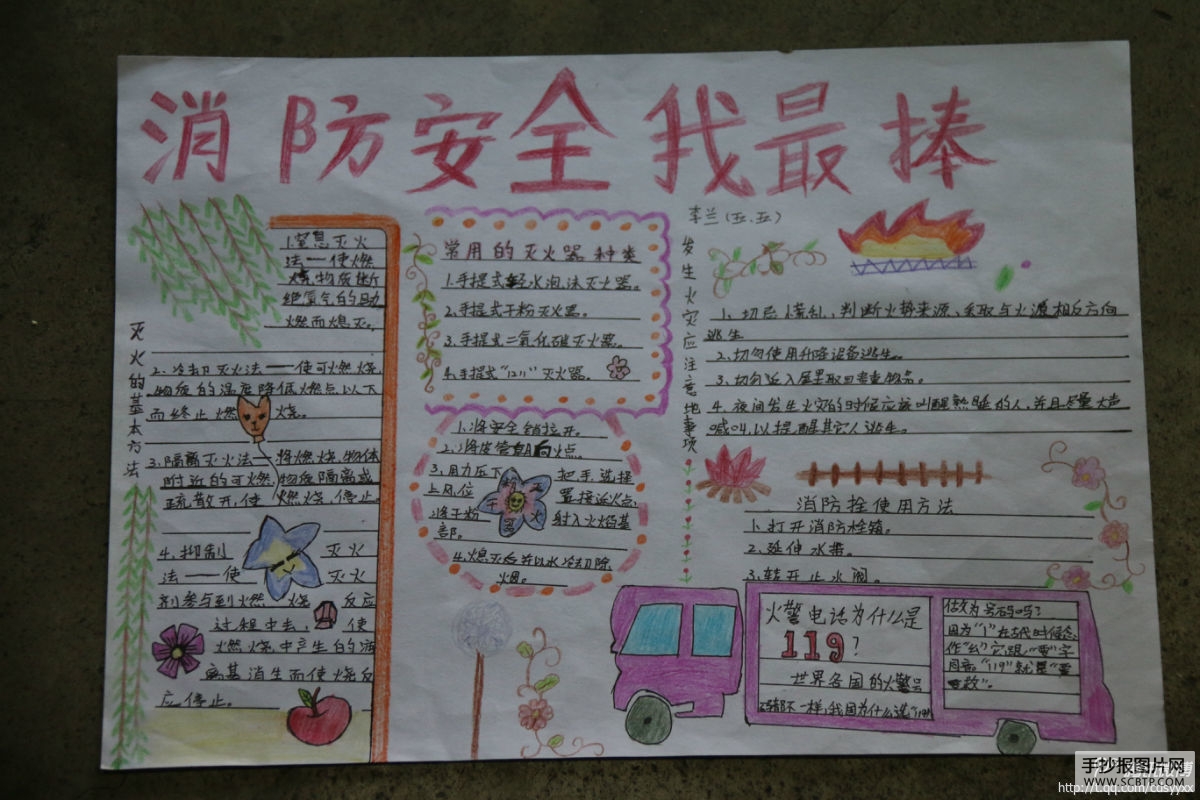 消防安全我最捧
李兰(五、五)
灭火的基本方法
1.窒息灭火
法——使燃
烧物质断
绝氧气的助
燃而熄灭。
2.冷却灭火法——使可燃烧
物质的温度降低燃点以下
而终止燃烧。
3.隔离灭火法——将燃烧物体
附近的可燃物质隔离或
疏散开,使燃烧停止
4.抑制灭火
法——使灭火
剂参与到燃烧反应
过程中去,使
燃烧中产生的游
离基消生而使燃烧反
应停止。
常用的灭火器种类
1.手提式轻水泡沫灭火器。
2.手提式干粉灭火器。
3.手提式二氧化碳灭火器。
4.手提式“1211”灭火器。
干粉灭火
1.将安全销拉开。
2.将皮管向火点。
3.用力压下把手,选择
上风位置接近火点,
将干粉射入火焰基
部。
4.熄灭后并以水冷却除
烟。
发生火灾应注意地事项
1、切忌慌乱,判断火势来源,采取与火源相反方向
逃生
2、切勿使用升降设备逃生。
3、切勿返入屋里取回贵重物品。
4、夜间发生火灾的时候应该叫醒熟睡的人,并且尽量大声
喊叫,以提醒其它人逃生。
消防拴使用方法
1.打开消防栓箱。
2.延伸水带。
3.转开止水阀。
火警电话为什么是
119?
世界各国的火警号
码都不一样,我国为什么选“119”
做为号码吗?
因为“1”在古代时候念
作“幺”它跟“要”字
同音。“119”就是“要
救”。
手抄报图片网
WWW.SCBTP.COM
http://t.qq.com/cdsyyxx